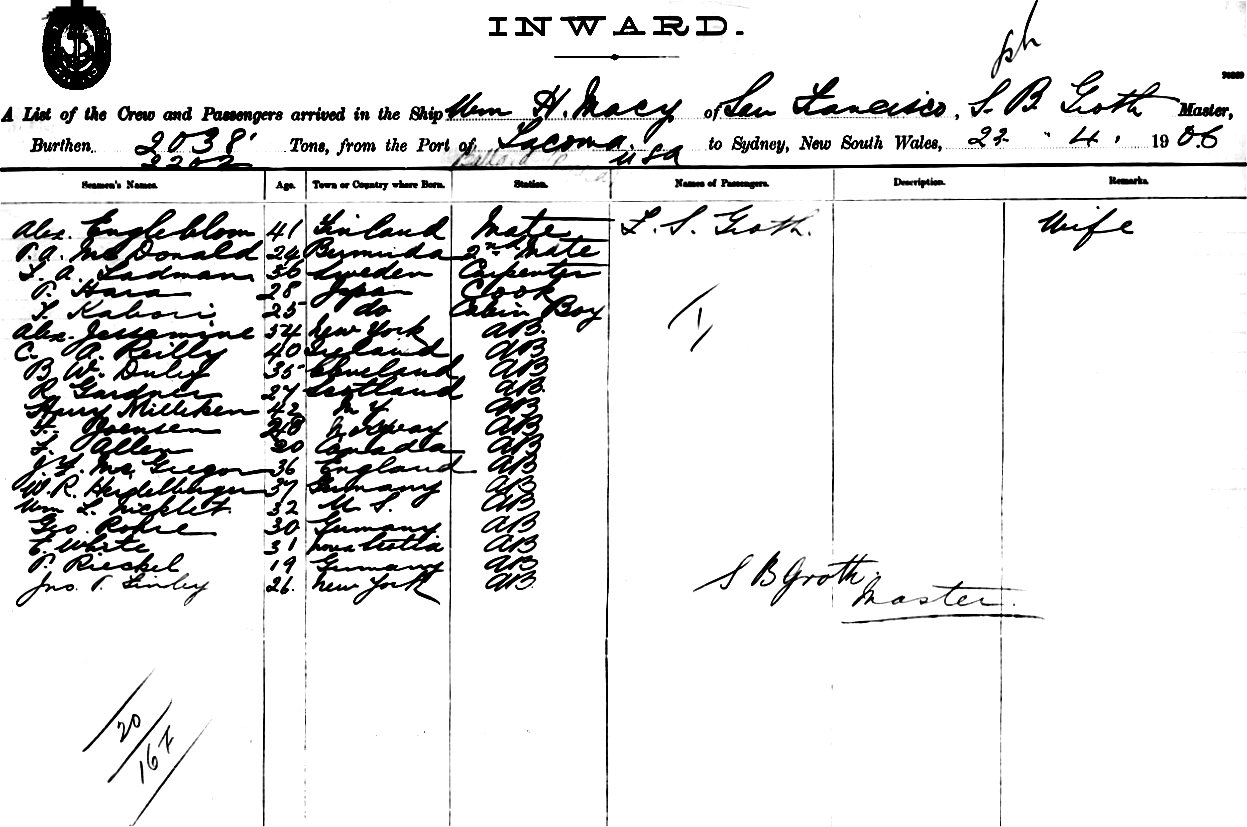 INWARD.
A List of the Crew and Passengers arrived in the Ship Wm H. Macy of San Francisco, S. B. Groth Master,
Burthen 2038 Tons, from the Port of Tacoma, USA to Sydney, New South Wales, 22 . 4 . 1906
2202
Seamen's Names. Age. Town or Country where Born. Station. Names of Passengers. Description. Remarks.
Alex. Englebloom 41 Finland Mate L. S. Groth. Wife
P. A. McDonald 24 Bermuda 2nd Mate
L. A. Ladman 56 Sweden Carpenter
T. Hara 28 Japan Cook
T. Kabori 25 do Cabin Boy
Alex. Jessamine 54 New York AB.
C. A. Reilly 40 Ireland AB
B W. Duley 35 Cleveland AB
R Gardner 27 Scotland AB.
Harry Milliken 42 N Y AB
Joensen 28 Norway AB
Allen 20 Canada AB
J. F. McGregor 36 England AB
W. R. Heidelberger 37 Germany AB
Wm L. 32 U. S. AB
Geo. 30 Germany AB
E. White 31 Nova Scotia AB
P. Rieckel 19 Germany AB
Jno. T. Finley 26. New York AB
S B Groth.
Master.
20
16 F